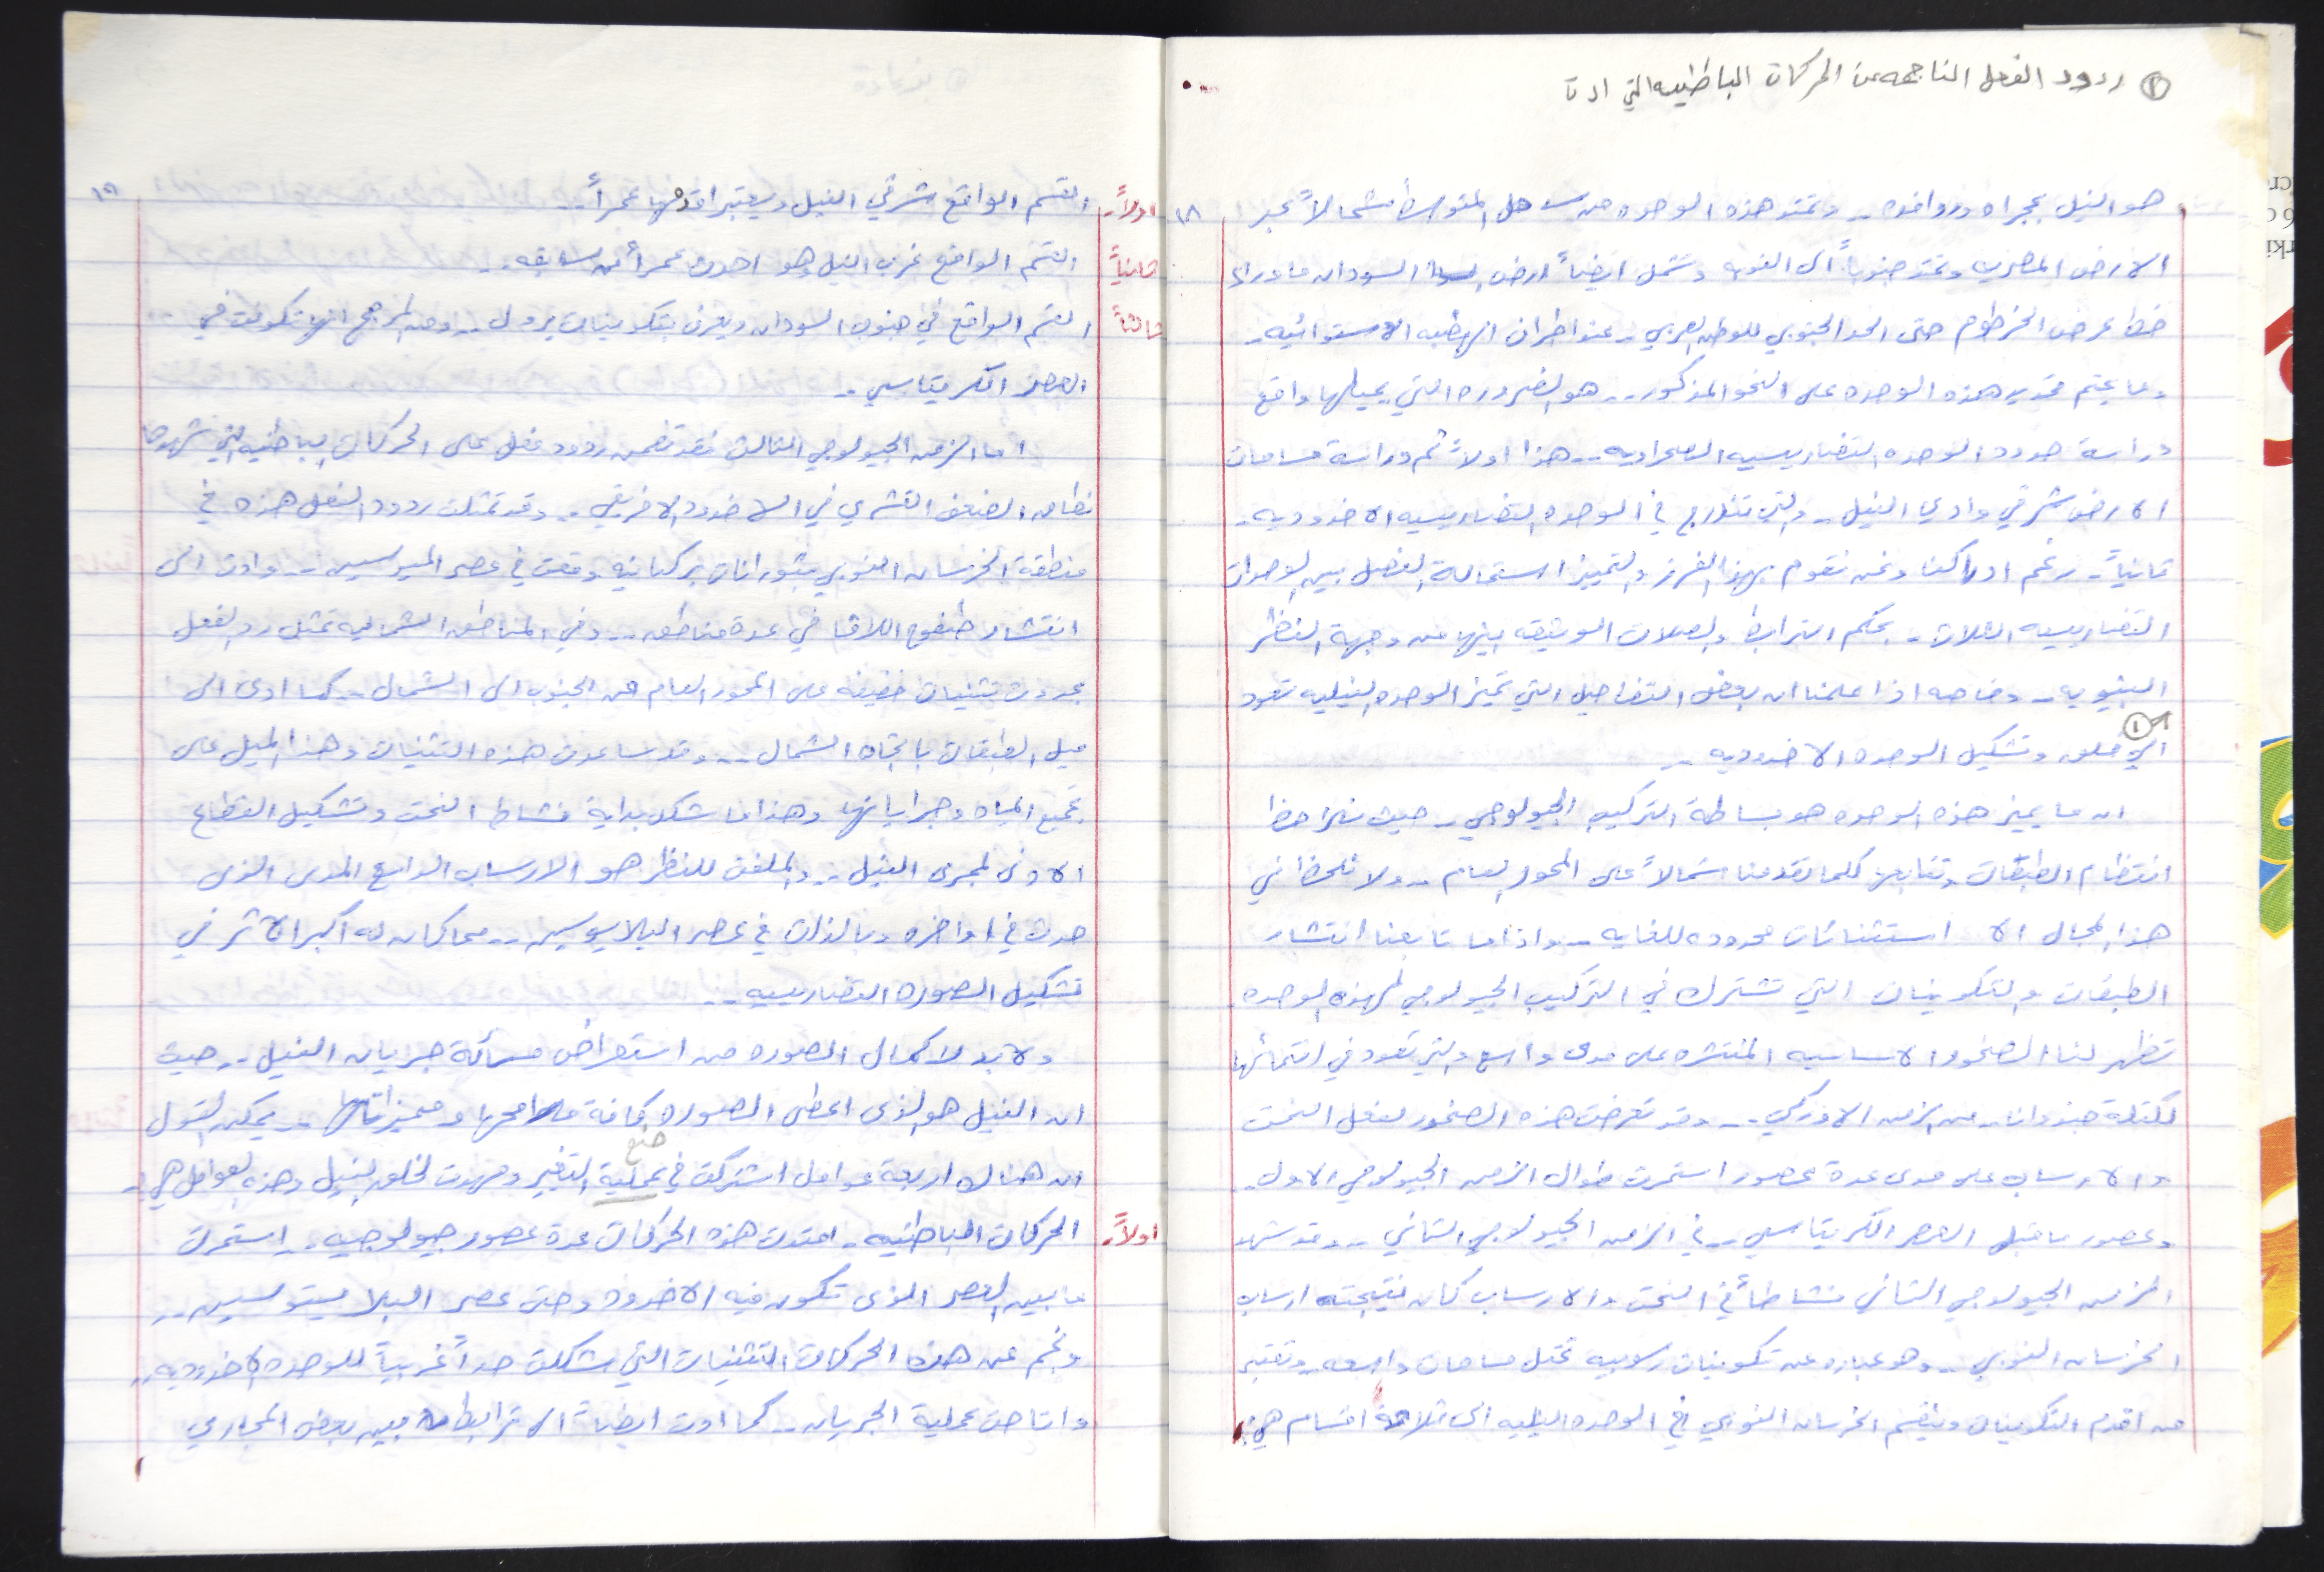 ① ردود الفعل الناجمه عن الحركات الباطنيه التي ادت
١٨
هو النيل بمجراه وروافده .. وتمتد هذه الوحده من ساحل المتوسط شمالاً عبر
الارض المصريه وتمتد جنوباً الى النوبه وتشمل ايضاً ارض السودان ما وراء
خط عرض الخرطوم حتى الحد الجنوبي للوطن العربي .. عند اطراف الهضبه الاستوائيه ..
وما يحتم تحديد هذه الوحده على النحو المذكور .. هو الضروره التي يمليها واقع
دراسة حدود الوحده التضاريسيه الصحراويه .. هذا اولاً ثم دراسة مساحات
الارض شرقي وادي النيل .. والتي تندرج في الوحده التضاريسيه الاخدوديه ..
ثانياً .. رغم ادراكنا ونحن نقوم بهذا الفرز والتمييز استحالة الفصل بين الوحدات
التضاريسيه الثلاث .. بحكم الترابط والصلات الوثيقه بينها من وجهة النظر
البنيويه .. وخاصه اذا علمنا ان بعض التفاصيل التي تميز الوحده النيليه تعود
①
الى خلق وتشكيل الوحده الاخدوديه ..
ان ما يميز هذه الوحده هو بساطة التركيب الجيولوجي .. حيث نلاحظ
انتظام الطبقات وتتابعها كلما تقدمنا شمالاً على المحور العام .. ولا نلحظ في
هذا المجال الا استثنائات محدوده للغايه .. واذا ما تابعنا انتشار
الطبقات والتكوينات التي تشترك في التركيب الجيولوجي لهذه الوحده
تظهر لنا الصخور الاساسيه المنتشره على مدى واسع والتي تعود في انتمائها
لكتلة جندوانا .. من الزمن الاركي .. وقد تعرضت هذه الصخور لفعل النحت
والارساب على مدى عدة عصور استمرت طوال الزمن الجيولوجي الاول ..
وعصور ما قبل العصر الكريتاسي .. في الزمن الجيولوجي الثاني .. وقد شهد
الزمن الجيولوجي الثاني نشاطاً في النحت والارساب كان نتيجته ارساب
الخرسان النوبي .. وهو عباره عن تكوينات رسوبيه تحتل مساحات واسعه .. وتعتبر
من اقدم التكوينات وينقسم الخرسان النوبي في الوحده النيليه الى ثلاثة اقسام هي:
١٩
اولاً .. القسم الواقع شرقي النيل ويعتبر اقدمها عمراً ..
ثانياً القسم الواقع غرب النيل وهو احدث عمراً من سابقه ..
ثالثاً القسم الواقع في جنوب السودان ويعرف بتكوينات يرول .. ومن المرجح انها تكونت في
العصر الكريتاسي ..
اما الزمن الجيولوجي الثالث فقد تضمن ردود فعل على الحركات الباطنيه التي شهدها
نطاق الضعف القشري في الاخدود الافريقي .. وقد تمثلت ردود الفعل هذه في
منطقة الخرسان النوبي بثورانات بركانيه وقعت في عصر الميوسين .. وادت الى
انتشار طفوح اللافا في عدة مناطق .. وفي المناطق الشماليه تمثل رد الفعل
بحدوث تثنيات خفيفه على المحور العام من الجنوب الى الشمال .. كما ادى الى
ميل الطبقات باتجاه الشمال .. وقد ساعدت هذه التثنيات وهذا الميل على
تجميع المياه وجرايانها وهذا ما شكل بداية نشاط النحت وتشكيل القطاع
الاولى لمجرى النيل .. والملفت للنظر هو الارساب الواسع المدى الذي
حدث في اواخره وبالذات في عصر البلايوسين .. مما كان له اكبر الاثر في
تشكيل الصوره التضاريسيه ..
ولا بد لاكمال الصوره من استعراض مسألة جريان النيل .. حيث
ان النيل هو الذي اعطى الصوره كافة ملامحها ومميزاتها .. يمكن القول
ان هناك اربعة عوامل اشتركت في عملية التغير ومهدت لخلق النيل وهذه العوامل هي ..
اولاً .. الحركات الباطنيه .. امتدت هذه الحركات عدة عصور جيولوجيه .. استمرت
ما بين العصر الذي تكون فيه الاخدود وحتى عصر البلايستوسين ..
ونجم عن هذه الحركات التثنيات التي شكلت حداً غربياً للوحده الاخدوديه ..
واتاحت عملية الجريان .. كما ادت ايضاً الى ترابط ما بين بعض المجاري